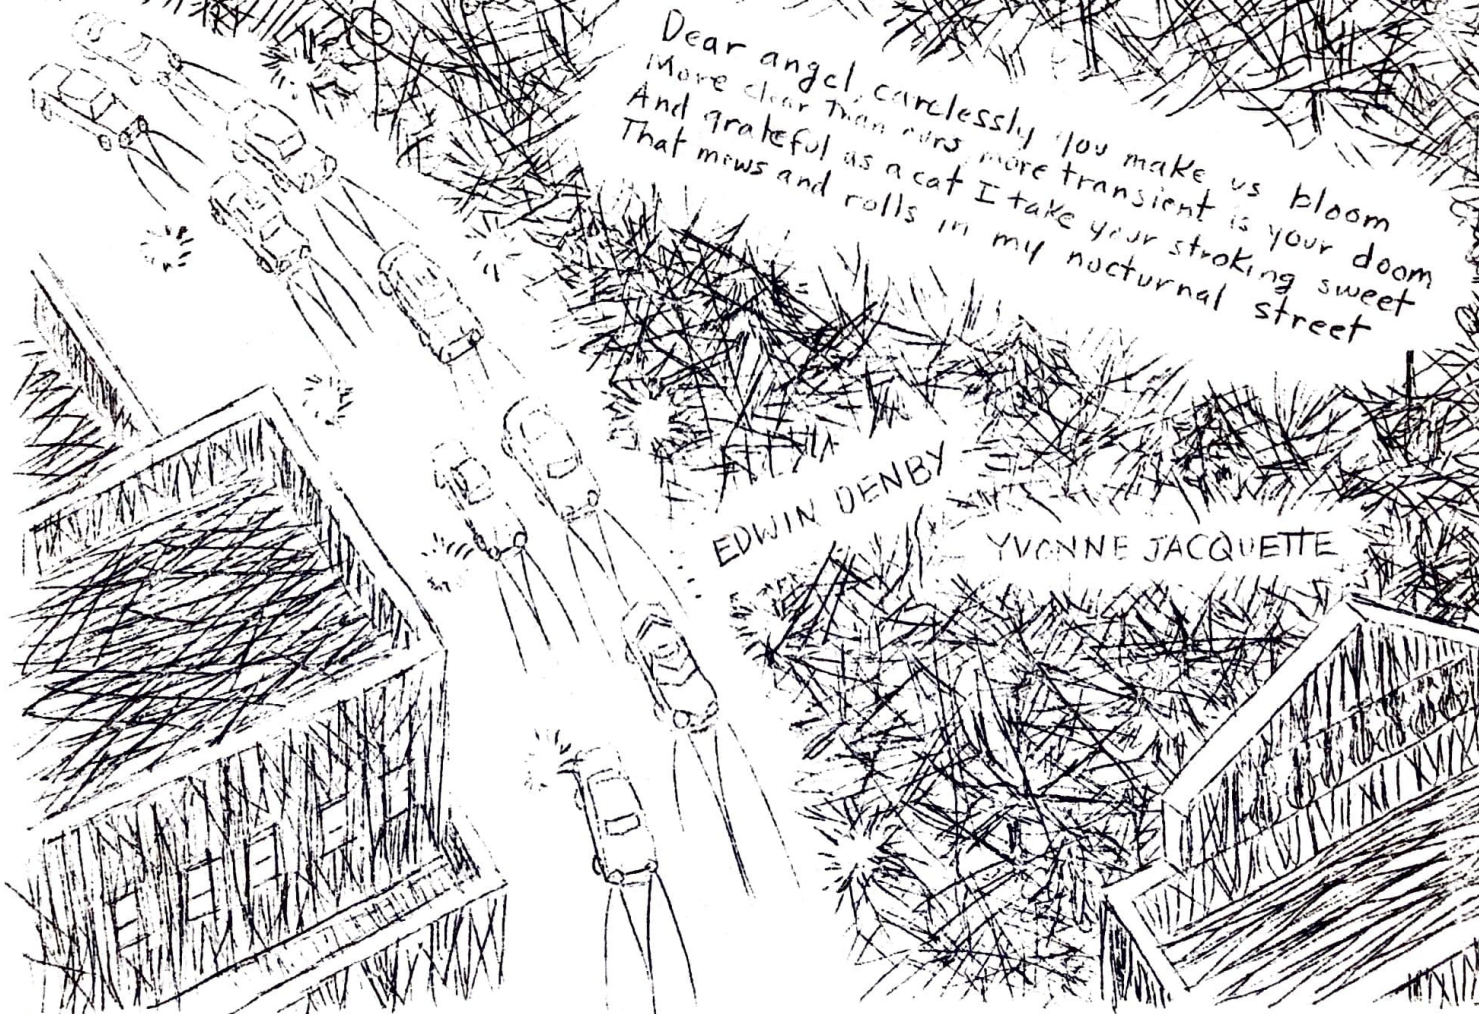 Dear angel, carelessly you make us bloom
More clear than ours more transient is your doom
And grateful as a cat I take your stroking sweet
That mows and rolls in my nocturnal street
EDWIN DENBY
YVONNE JACQUETTE